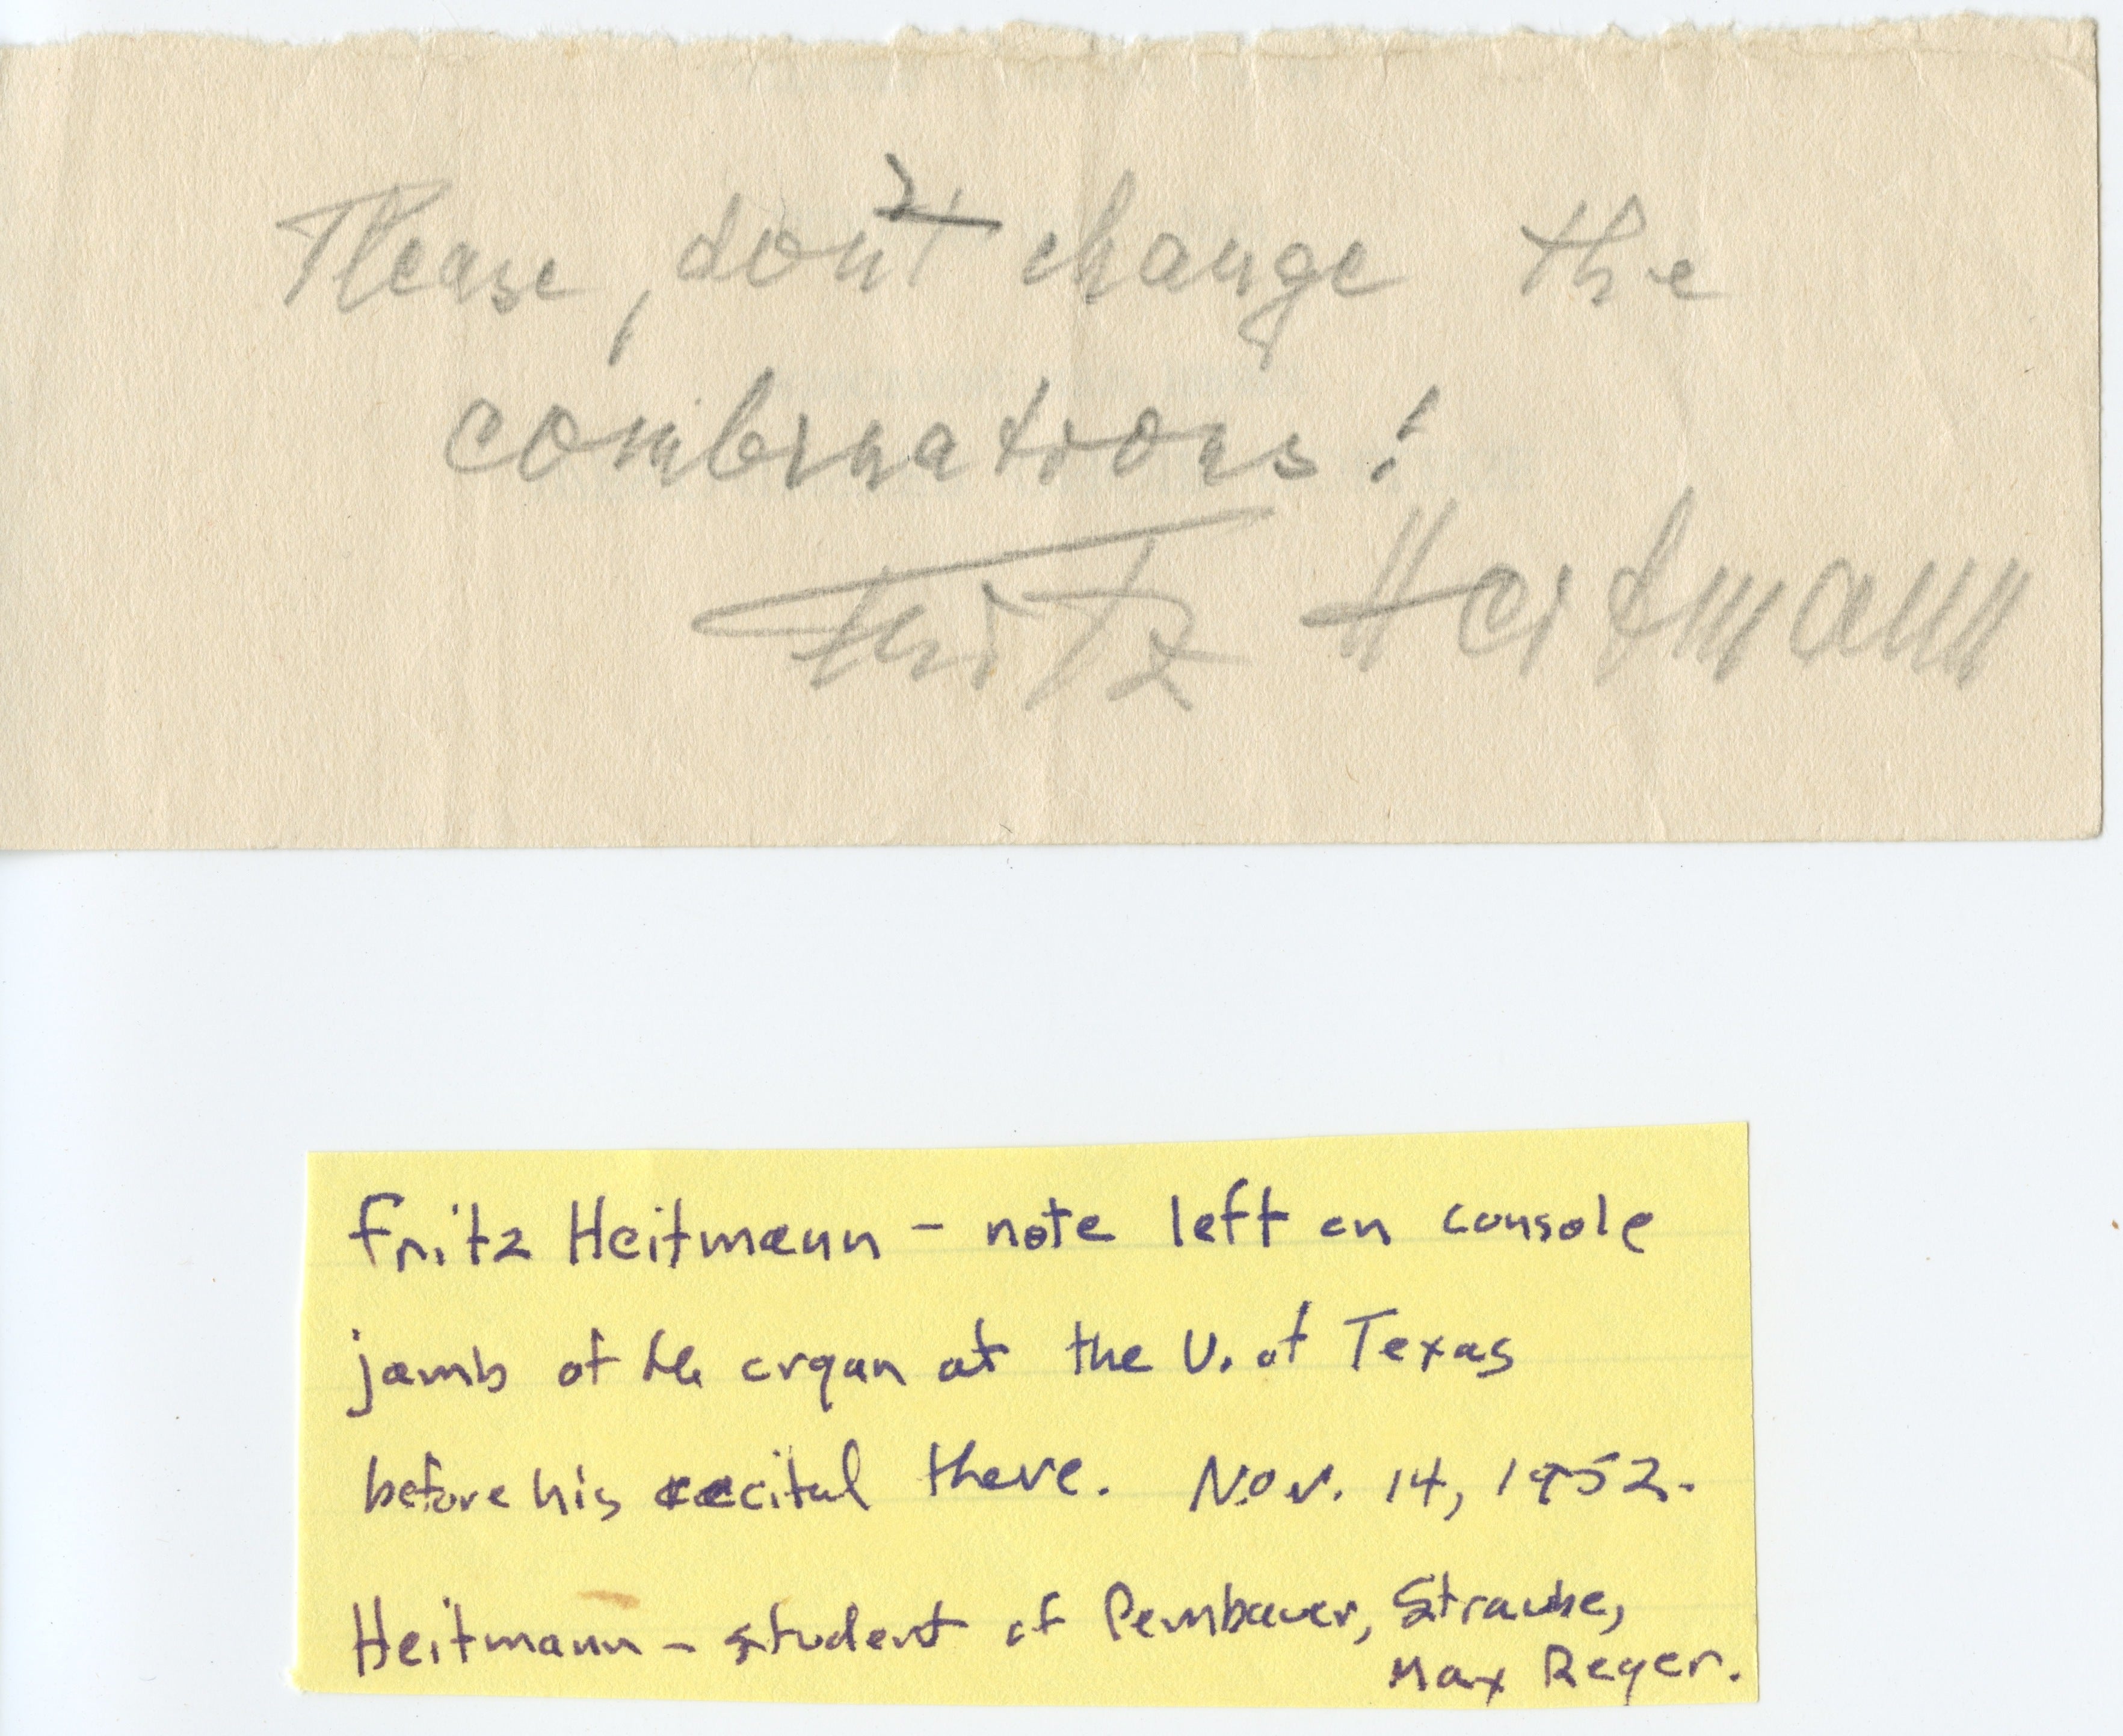 Please, don't change the
combinations!
Fritz Heitmann
Fritz Heitmann - note left on console
jamb of the organ at the U. of Texas
before his recital there. Nov. 14, 1952.
Heitmann - student of Pembauer, Straube,
Max Reger.